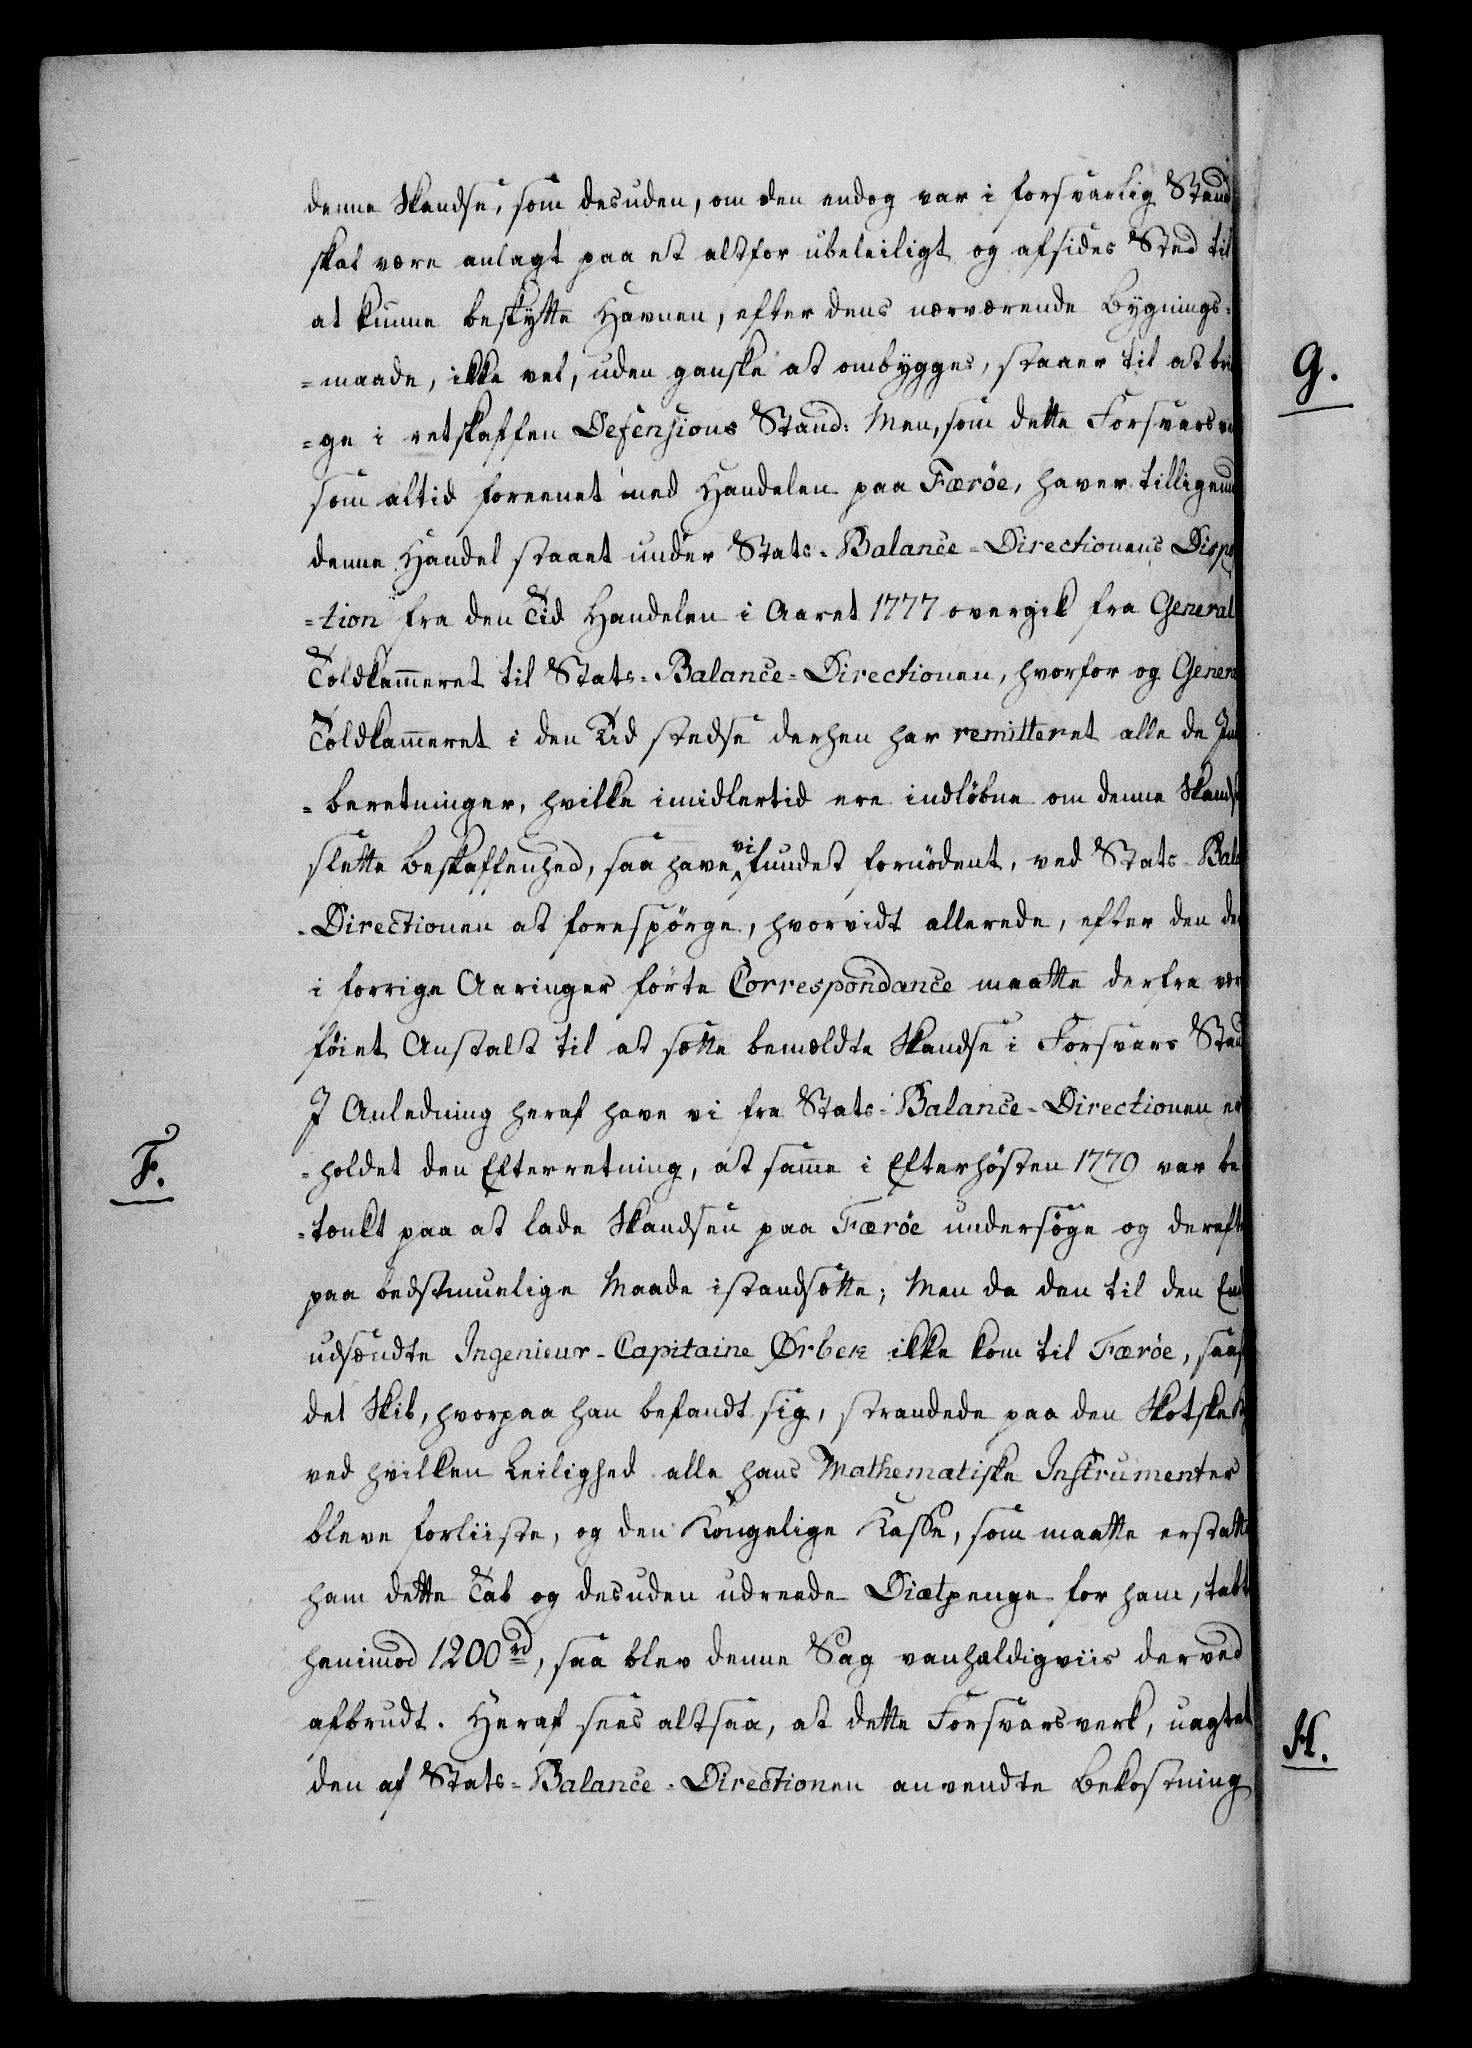 denne Skandse, som desuden, om den endog var i forsvarlig Stand
skal være anlagt paa et altfor ubeleiligt og afsides Sted til
at kunne beskytte Havnen, efter dens nærværende Bygnings=
=maade, ikke vel, uden ganske at ombygges, staaer til at brin
=ge i retskaffen Defensions Stand: Men, som dette Forsvarsve
som altid foreenet med Handelen paa Færøe, haver tilligemed
denne Handel staaet under Stats=Balance=Directionens Dispo
=tion fra den Tid Handelen i Aaret 1777 overgik fra General
Toldkam̄eret til Stats=Balance=Directionen, hvorfor og Genera
Toldkam̄eret i den Tid stedse derhen har remitteret alle de Ind
=beretninger, hvilke imidlertid ere indløbne om denne Skandse
slette Beskaffenhed, saa have vi fundet fornödent, ved Stats=Bala
=Directionen at forespørge, hvorvidt allerede, efter den de
i forrige Aaringer førte Correspondance maatte derfra vær
føiet Anstalt til at sætte bemældte Skandse i Forsvars Stand
I Anledning heraf have vi fra Stats=Balance=Directionen er
=holdet den Efterretning, at sam̄e i Efterhøsten 1779 var be
=tænkt paa at lade Skandsen paa Færøe undersøge og derefte
paa bedstmuelige Maade istandsætte; Men da den til den Ende
udsændte Ingenieur-Capitaine Ørbek ikke kom til Færøe, saas
det Skib, hvorpaa han befandt sig, strandede paa den Skotske
ved hvilken Leilighed alle hans Mathematiske Instrumenter
bleve forliiste, og den Kongelige Kasse, som maatte erstatte
ham dette Tab og desuden udreede Diætpenge for ham, tabt
henimod 1200 rd, saa blev denne Sag vanhældigviis derved
afbrudt. Heraf sees altsaa, at dette Forsvarsverk, uagtet
den af Stats=Balance=Directionen anvendte Bekostning
F.
G.
H.